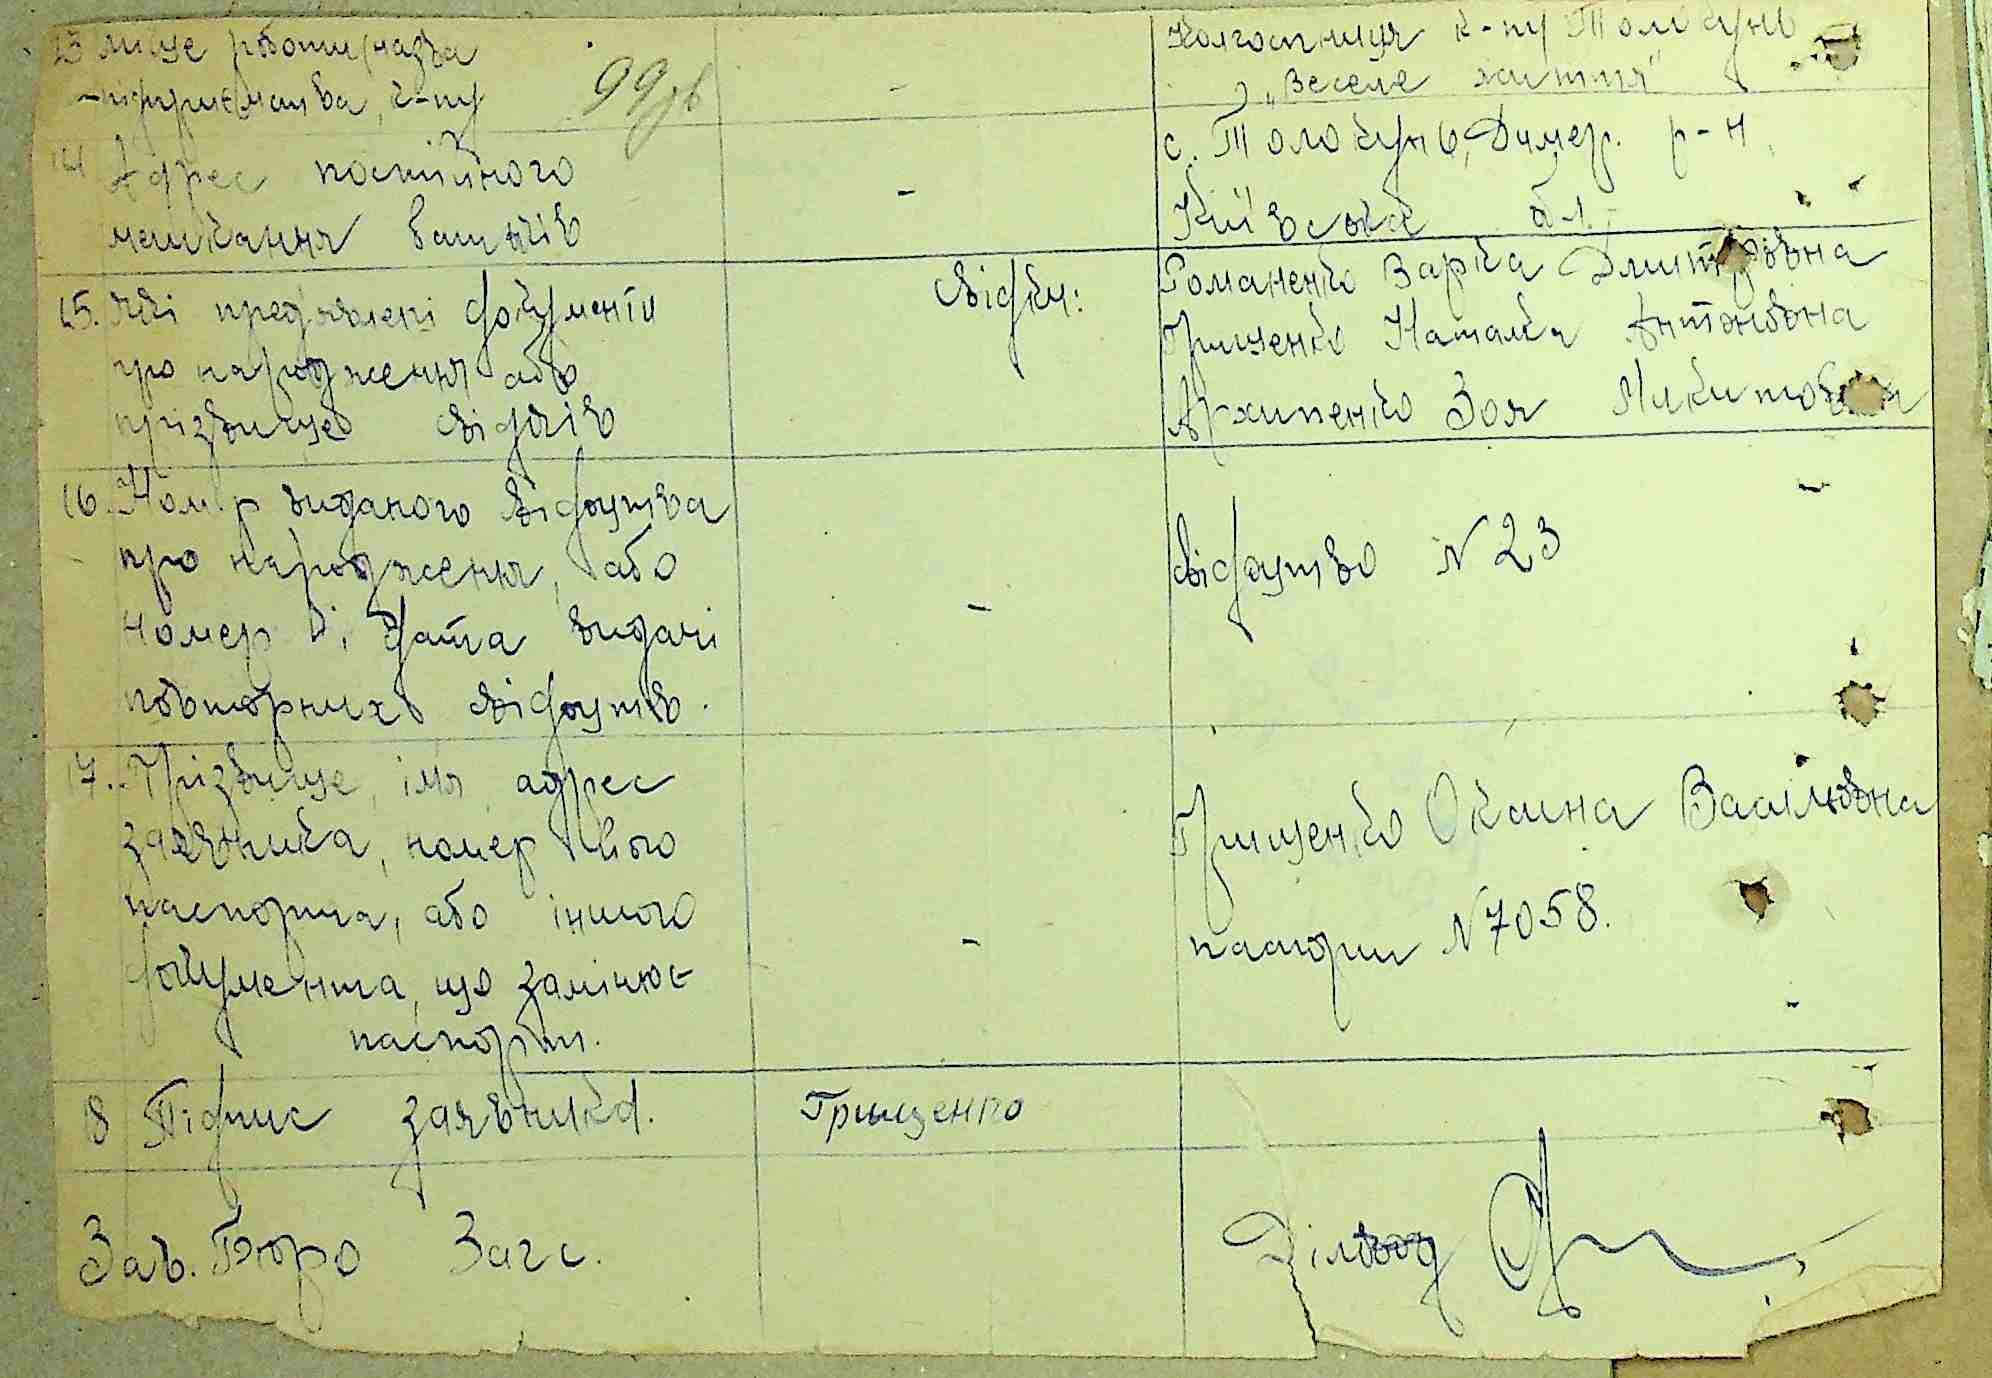 13 місце роботи, назва
підприємства, к-пу
99зв
-
Колгоспниця к-пу Толокунь
"Веселе життя"
14 Адрес постійного
мешкання батьків
-
с. Толокунь, Димер. р-н,
Київська обл.
15. Які пред'явлені документи
про народження або
прізвище свідків
свідки:
Романенко Варка Дмитрівна
Грищенко Наталка Антонівна
Архипенко Зоя Микитовна
16. Номер виданого свідоцтва
про народження, або
номер і дата видачі
повторних свідоцтв.
-
свідоцтво N 23
17. Прізвище, імя, адрес
заявника, номер його
паспорта, або іншого
документа, що замінює
паспорт.
-
Грищенко Оксана Василівна
паспорт N 7058.
18 Підпис заявника.
Грищенко
Зав. Бюро Загс.
Діловод